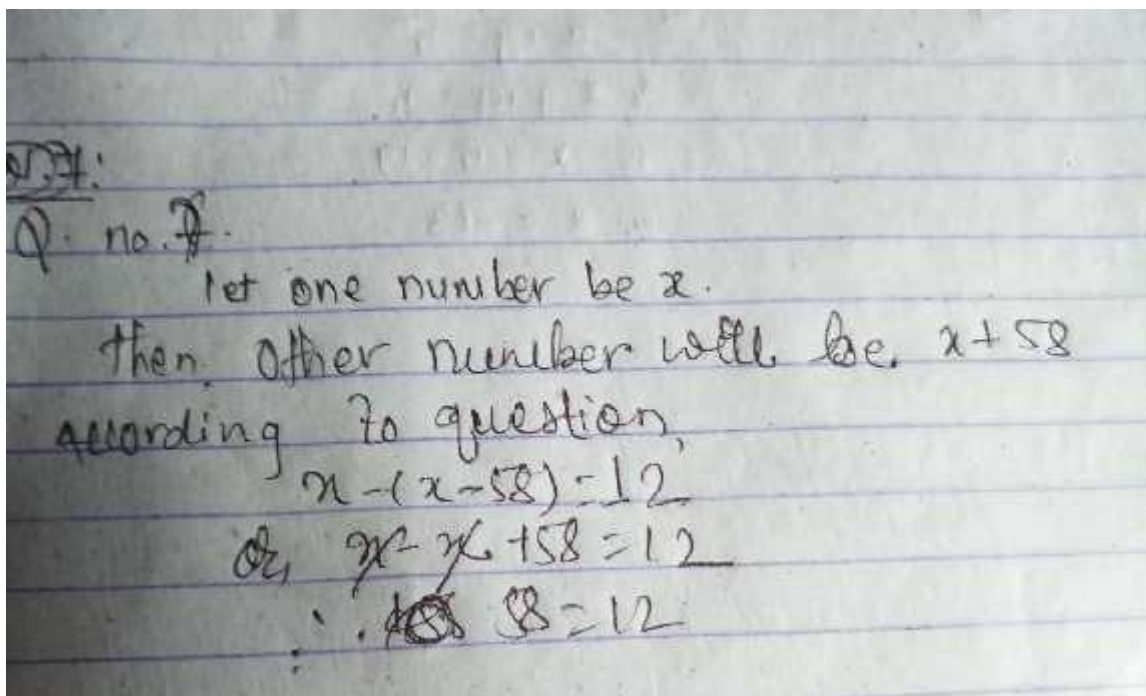 Q. no. 7.
let one number be x.
then other number will be. x + 58
according to question,
x - (x - 58) = 12
or, x - x + 58 = 12
∴ 58 = 12